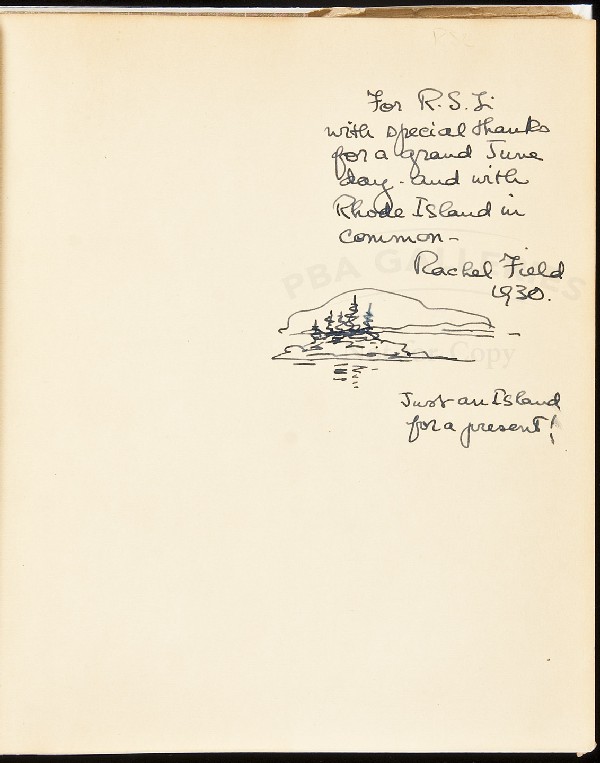 For R.S.L.
with special thanks
for a grand June
day - and with
Rhode Island in
common -
Rachel Field
1930.
PBA GALLERIES
for Copy
Just an Island
for a present!